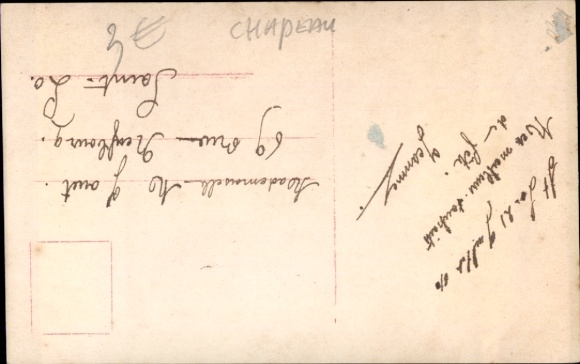 CHAPEAU
Mademoiselle M Gaut.
69 rue Neufbourg.
Saint-Lo.
St Lo. le 21 Juillet
Mes meilleurs souhaits
de fête.
Jeanne